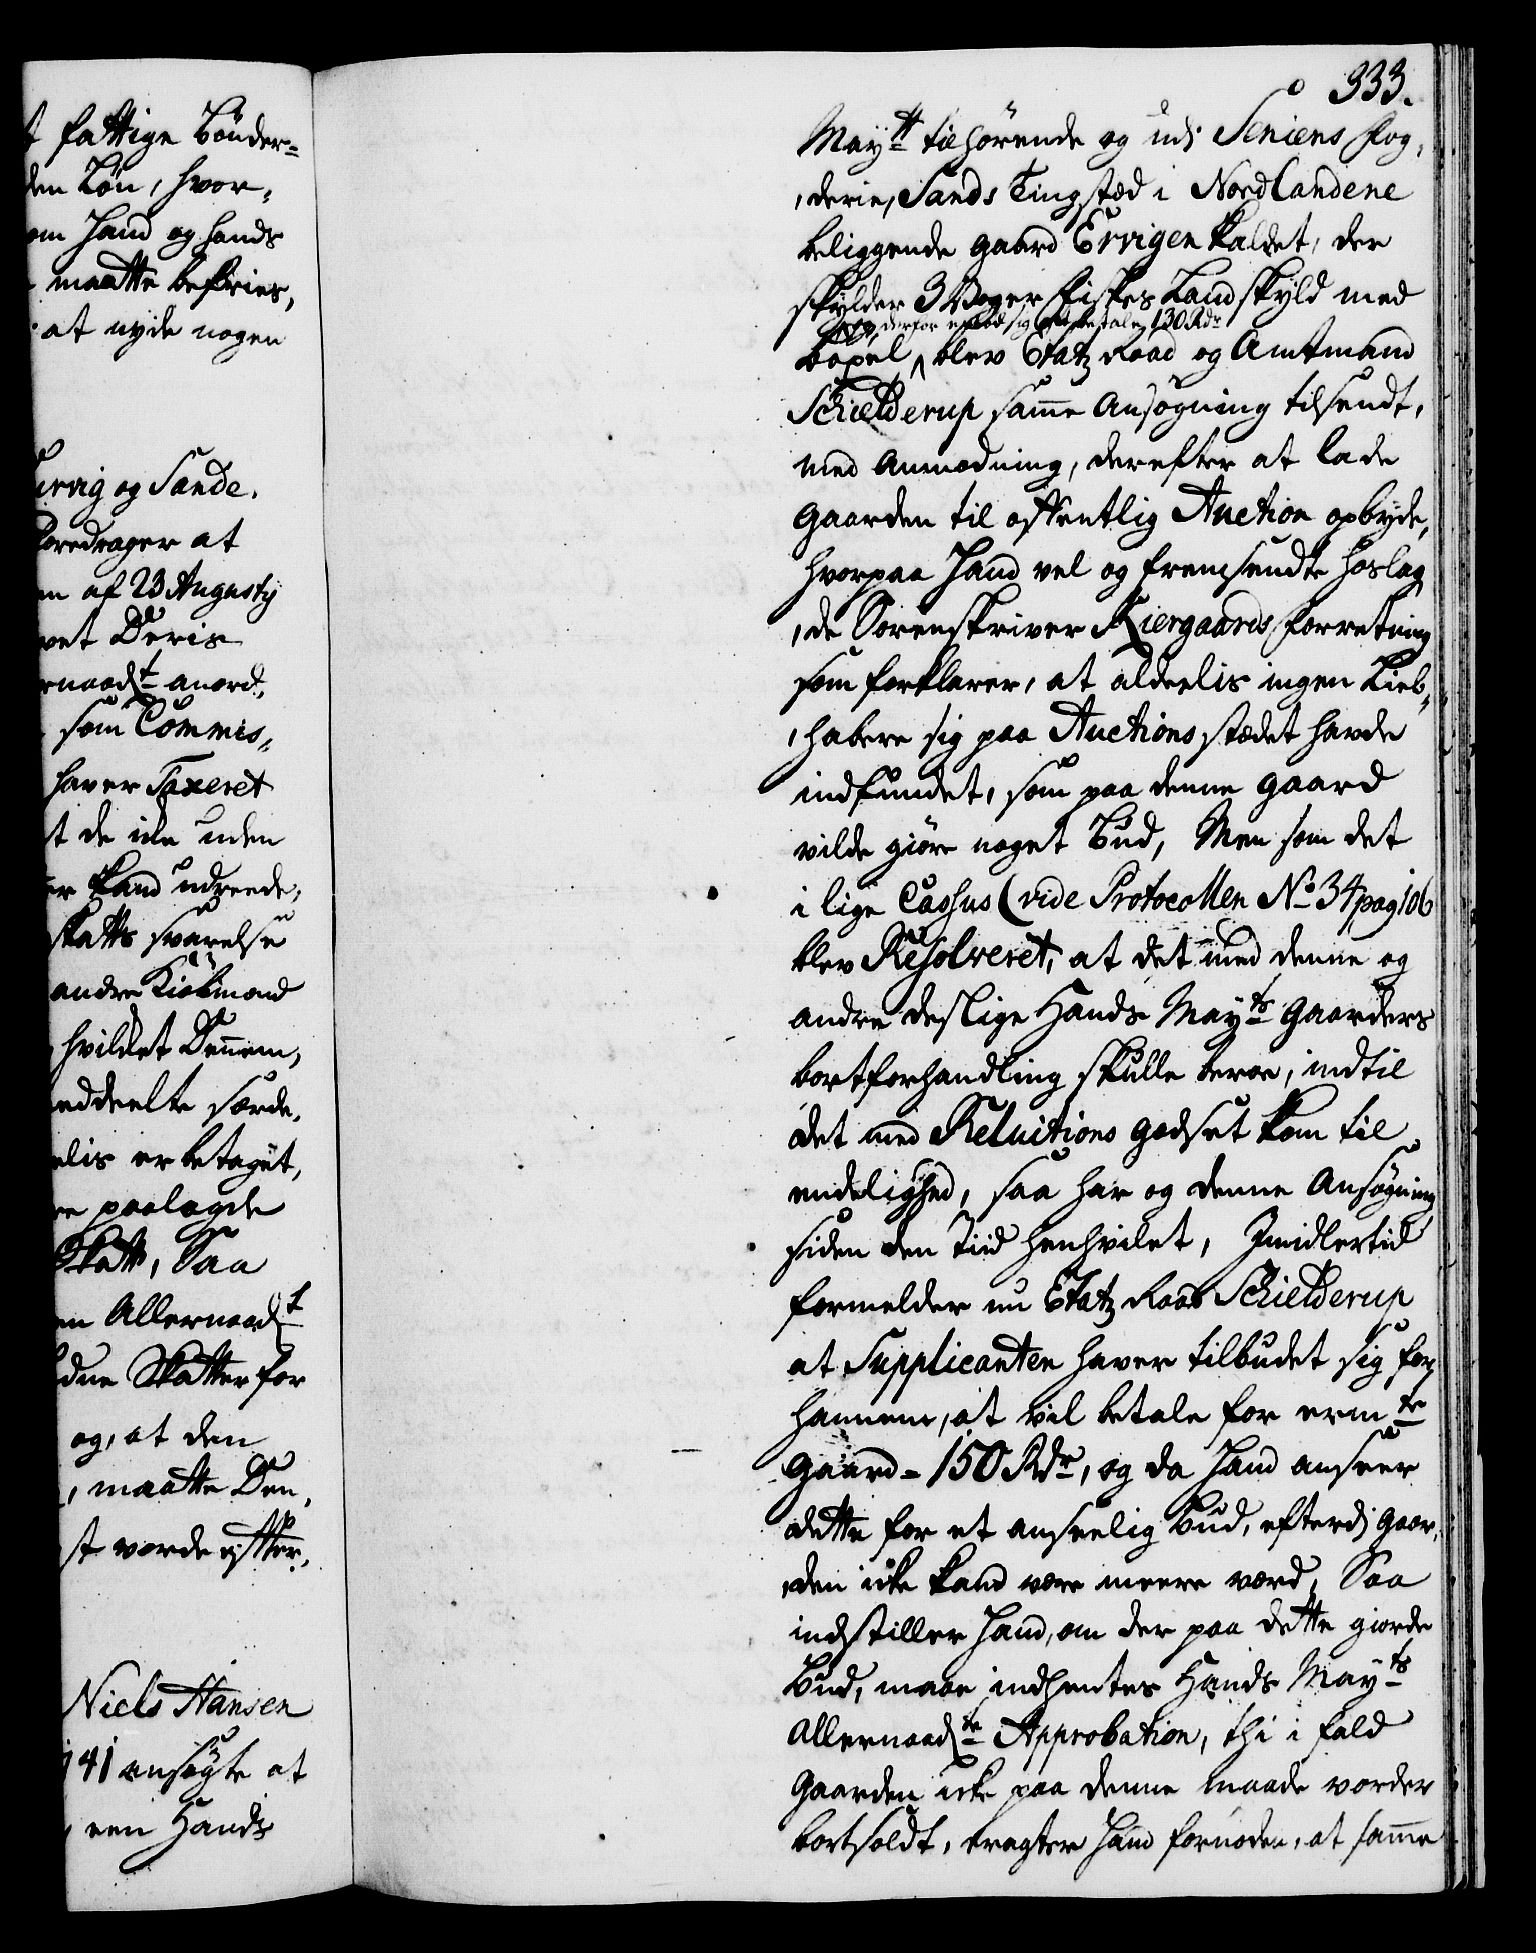 t fattige Bönder=
den Lön, hvor,
om Hand og hands
maatte befries,
at nyde nogen
urvig og Sande.
Foredrager at
en af 23 Augusty
vet Deris
rnaadt anord,,
som Commis,,
haver Taxeret
t de icke uden
er kand udreede,
skatts svarelse
andre Kiöbmænd
hvildet Dennem,
eddeelte særde,
elis er betaget,
re paalagde
Skatt, Saa
en Allernaadt
dne Skatter for
og, at den
, maatte Den,
st vorde efter,
Niels Hansen
41 ansøgte at
een Hands
333.
Maytt tilhörende og udj Seniens fog,
,derie, Sands Tingstæd i Nordlandene
beliggende gaard Ervigen kaldet, der
skylder 3 Woger Fiskes Landskyld med
derfor erbød sig at betale 130 Rdr
böxel, blev Etatz Raad og Amtmand
Schielderup samme Ansögning tilsendt,
med Anmodning, derefter at lade
Gaarden til offentlig Auction opbyde,
hvorpaa Hand vel og fremsendte hoslag,
,de Sorenskriver Kiergaards forretning
som forklarer, at aldeelis ingen Lieb,,
,habere sig paa Auctions stædet havde
indfundet, som paa denne gaard
vilde giöre noget Bud, Men som det
i lige Cashus (vide Protocollen No 34 pag 106
blev Resolveret, at det med denne og
andre deslige Hands Mayts gaarders
bortforhandling skulle beroe, indtil
det med Reluitions godset kom til
endelighed, saa har og denne Ansögning
siden den Tiid henhvilet, Imidlertid
formelder nu Etatz Raad Schielderup
at Supplicanten haver tilbudet sig for
hannem, at vil betale for ermte
gaard - 150 Rdr, og da Hand anseer
dette for et anseelig Bud, efterdj gaar,
,den icke kand være meere værd, Saa
indstiller Hand, om der paa dette giorde
Bud, maae indhentes Hands Mayts
Allernaadte Approbation, thi i fald
Gaarden icke paa denne maade vorder
bortsoldt, eragter Hand fornöden, at samme